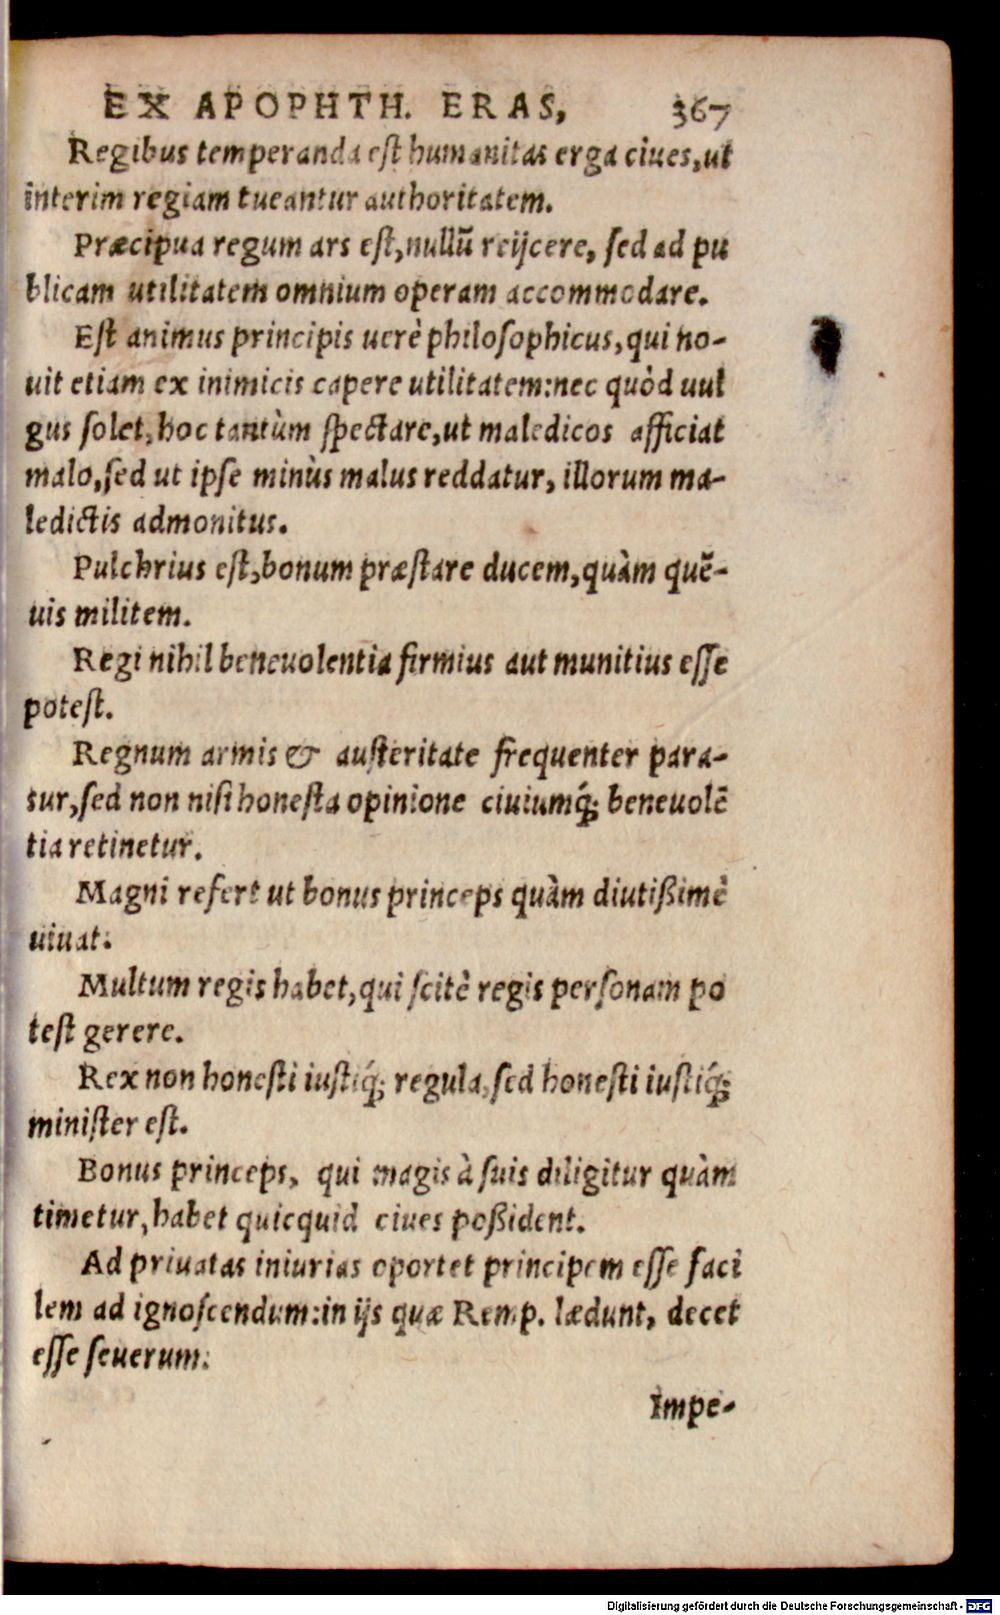 EX APOPHTH. ERAS, 367
Regibus temperanda est humanitas erga ciues, ut
interim regiam tueantur authoritatem.
Præcipua regum ars est, nullũ reijcere, sed ad pu
blicam utilitatem omnium operam accommodare.
Est animus principis uerè philosophicus, qui no-
uit etiam ex inimicis capere utilitatem: nec quòd uul
gus solet, hoc tantùm spectare, ut maledicos afficiat
malo, sed ut ipse minùs malus reddatur, illorum ma-
ledictis admonitus.
Pulchrius est, bonum præstare ducem, quàm quẽ-
uis militem.
Regi nihil beneuolentia firmius aut munitius esse
potest.
Regnum armis & austeritate frequenter para-
tur, sed non nisi honesta opinione ciuiumq́; beneuolẽ
tia retinetur.
Magni refert ut bonus princeps quàm diutißimè
uiuat.
Multum regis habet, qui scitè regis personam po
test gerere.
Rex non honesti iustiq́; regula, sed honesti iustiq́;
minister est.
Bonus princeps, qui magis à suis diligitur quàm
timetur, habet quicquid ciues poßident.
Ad priuatas iniurias oportet principem esse faci
lem ad ignoscendum: in ijs quæ Remp. lædunt, decet
esse seuerum.
Impe-
Digitalisierung gefördert durch die Deutsche Forschungsgemeinschaft - DFG